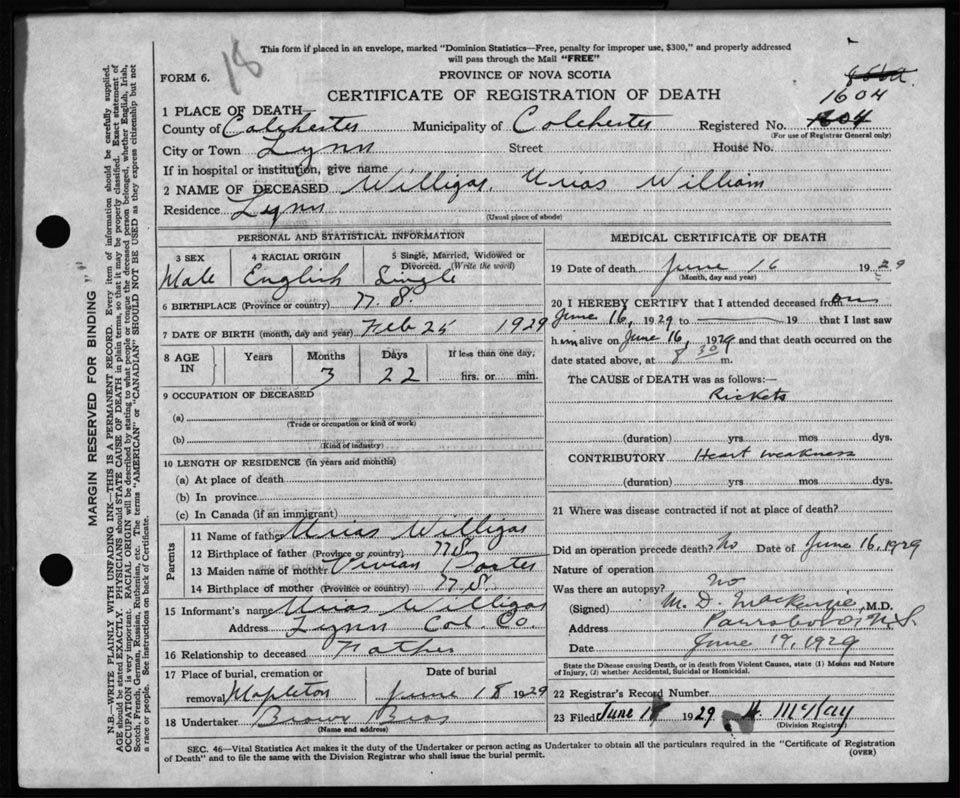 18
This form if placed in an envelope, marked "Dominion Statistics—Free, penalty for improper use, $300," and properly addressed
will pass through the Mail "FREE"
FORM 6.
PROVINCE OF NOVA SCOTIA
CERTIFICATE OF REGISTRATION OF DEATH
1604
1 PLACE OF DEATH—
County of Colchester Municipality of Colchester Registered No. 1604
(For use of Registrar General only)
City or Town Lynn Street House No.
If in hospital or institution, give name
2 NAME OF DECEASED Willigar, Urias William
Residence Lynn
(Usual place of abode)
PERSONAL AND STATISTICAL INFORMATION
3 SEX 4 RACIAL ORIGIN 5 Single, Married, Widowed or Divorced. (Write the word)
Male English Single
6 BIRTHPLACE (Province or country) N.S.
7 DATE OF BIRTH (month, day and year) Feb 25 1929
8 AGE IN Years Months Days If less than one day,
3 22 hrs. or min.
9 OCCUPATION OF DECEASED
(a)
(Trade or occupation or kind of work)
(b)
(Kind of industry)
10 LENGTH OF RESIDENCE (in years and months)
(a) At place of death
(b) In province
(c) In Canada (if an immigrant)
Parents
11 Name of father Urias Willigar
12 Birthplace of father (Province or country) N.S.
13 Maiden name of mother Vivian Porter
14 Birthplace of mother (Province or country) N.S.
15 Informant's name Urias Willigar
Address Lynn Col. Co.
16 Relationship to deceased Father
17 Place of burial, cremation or Date of burial
removal Mapleton June 18 1929
18 Undertaker Brown Bros
(Name and address)
MEDICAL CERTIFICATE OF DEATH
19 Date of death June 16 1929
(Month, day and year)
20 I HEREBY CERTIFY that I attended deceased from on
June 16, 1929 to 19 that I last saw
him alive on June 16, 1929 and that death occurred on the
date stated above, at 8 30 m.
The CAUSE OF DEATH was as follows:—
Rickets
(duration) yrs. mos dys.
CONTRIBUTORY Heart weakness
(duration) yrs mos dys.
21 Where was disease contracted if not at place of death?
Did an operation precede death? No Date of June 16, 1929
Nature of operation
Was there an autopsy? no
(Signed) M. D. Mackenzie, M.D.
Address Parrsboro N.S.
Date June 19, 1929
State the Disease causing Death, or in death from Violent Causes, state (1) Means and Nature
of Injury, (2) whether Accidental, Suicidal or Homicidal.
22 Registrar's Record Number
23 Filed June 18 1929 H. McKay
(Division Registrar)
SEC. 46—Vital Statistics Act makes it the duty of the Undertaker or person acting as Undertaker to obtain all the particulars required in the "Certificate of Registration
of Death" and to file the same with the Division Registrar who shall issue the burial permit.
(OVER)
MARGIN RESERVED FOR BINDING
N.B.—WRITE PLAINLY WITH UNFADING INK—THIS IS A PERMANENT RECORD. Every item of information should be carefully supplied.
AGE should be stated EXACTLY. PHYSICIANS should STATE CAUSE OF DEATH in plain terms, so that it may be properly classified. Exact statement of
OCCUPATION is very important. RACIAL ORIGIN will be described by stating to what people or tongue the deceased person belonged, whether English, Irish,
Scotch, French, German, Russian, Ruthenian, etc. The terms "AMERICAN" or "CANADIAN" SHOULD NOT BE USED as they express citizenship but not
a race or people. See instructions on back of Certificate.